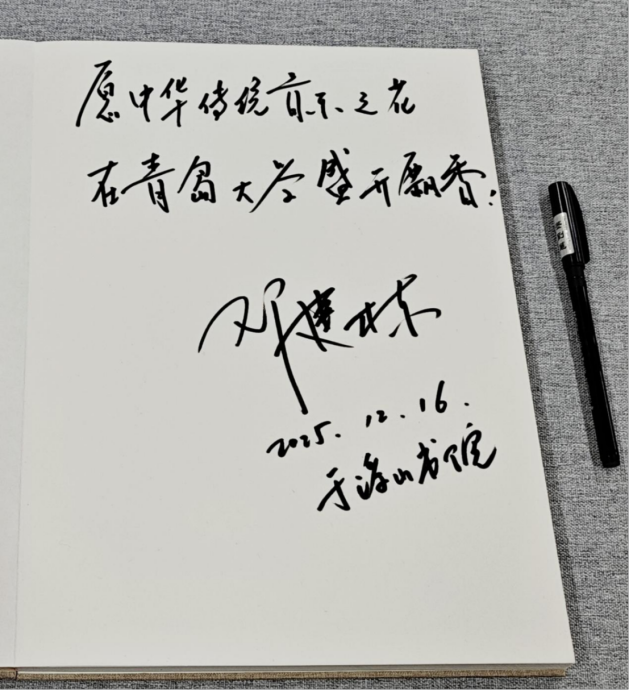 愿中华传统音乐之花
在青岛大学盛开飘香！
邓建栋
2025.12.16.
于浮山书院